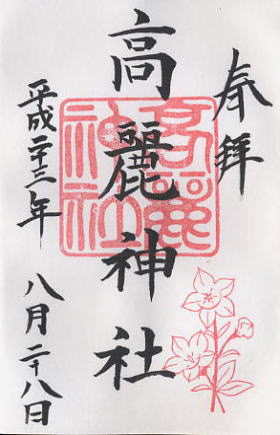 奉拝
高麗神社
高麗神社
平成二十三年
八月二十八日